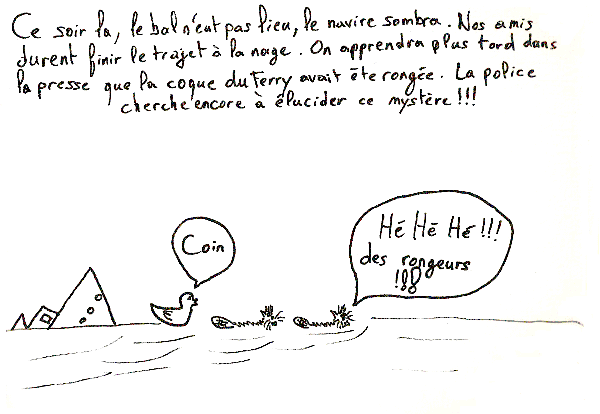 Ce soir la, le bal n'eut pas lieu, le navire sombra. Nos amis
durent finir le trajet à la nage. On apprendra plus tard dans
la presse que la coque du ferry avait été rongée. La police
cherche encore à élucider ce mystère!!!
Coin
Hé Hé Hé!!!
des rongeurs
!!!